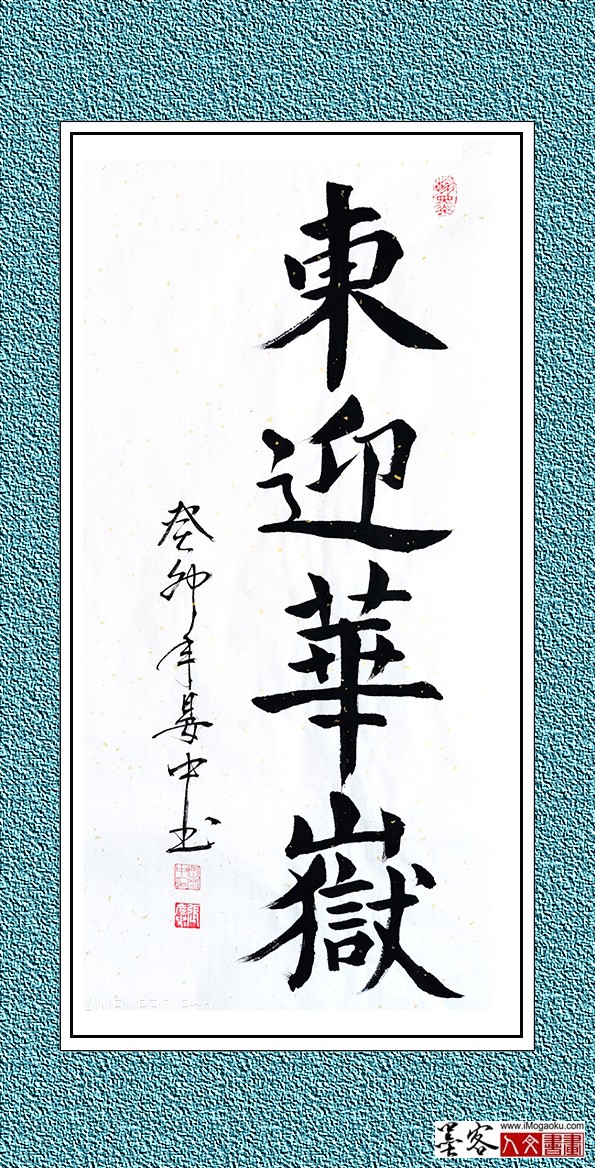 東迎華嶽
癸卯年晏中书
墨客
www.iMogaoku.com
人文書畫